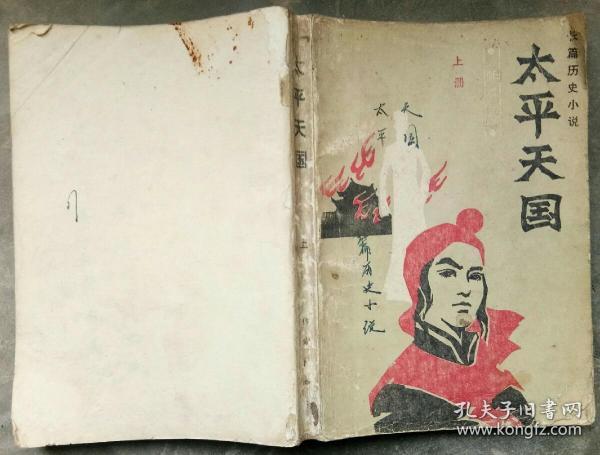 长篇历史小说
太平天国
上册
太平
天国
篇历史小说
太平天国
上
孔夫子旧书网
www.kongfz.com